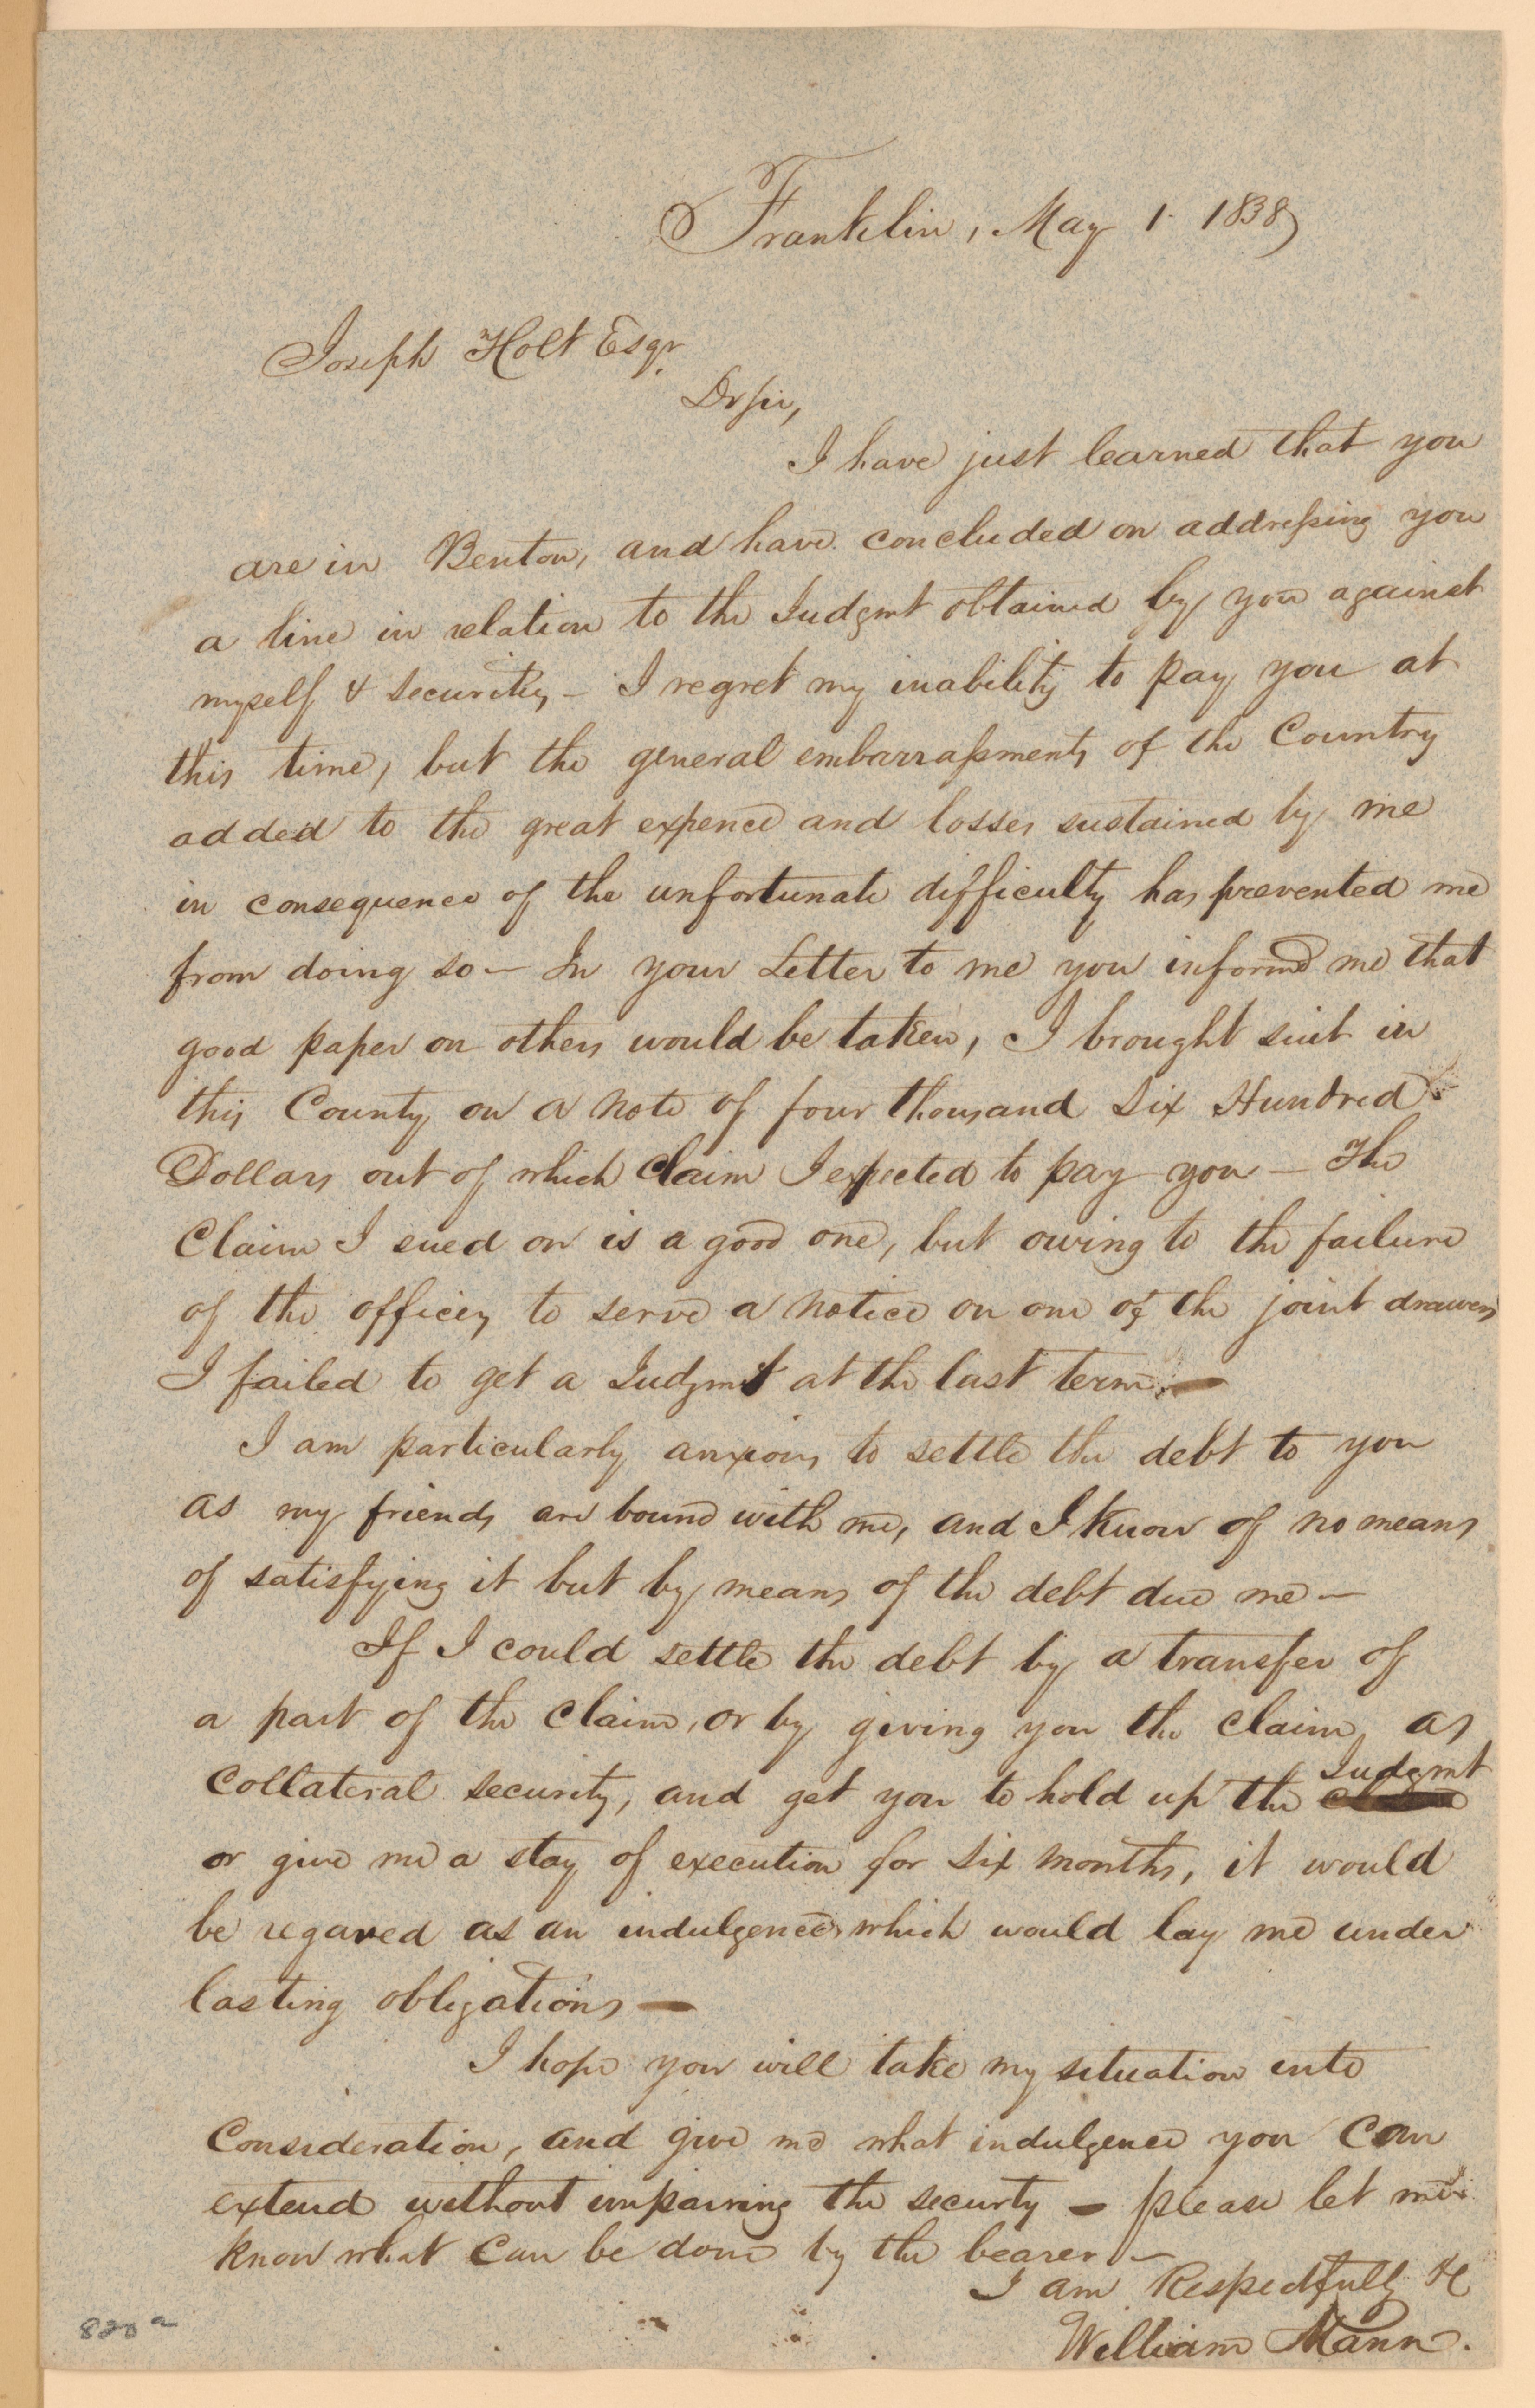 Franklin, May 1. 1838
Joseph Holt Esqr.
Dr Sir,
I have just learned that you
are in Benton, and have concluded on addressing you
a line in relation to the Judgmt obtained by you against
myself & security – I regret my inability to pay you at
this time, but the general embarrassments of the Country
added to the great expence and losses sustained by me
in consequence of the unfortunate difficulty has prevented me
from doing so – In your Letter to me you informd me that
good paper on others would be taken, I brought suit in
this County on a note of four thousand six Hundred
Dollars out of which Claim I expected to pay you – The
Claim I sued on is a good one, but owing to the failure
of the officer, to serve a notice on one of the joint drawers
I failed to get a Judgmt at the last term. –
I am particularly anxious to settle the debt to you
as my friends are bound with me, and I know of no means
of satisfying it but by means of the debt due me –
If I could settle the debt by a transfer of
a part of the Claim, or by giving you the claim, as
Collateral security, and get you to hold up the Judgmt
or give me a stay of execution for six months, it would
be regarred as an indulgence, which would lay me under
lasting obligations –
I hope you will take my situation into
Consideration, and give me what indulgence you can
extend without impairing the securty – please let me
know what can be done by the bearer –
I am Respectfully &c
William Mann.